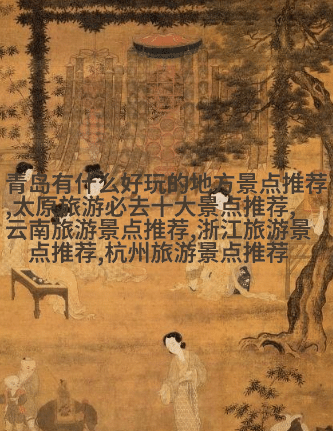 青岛有什么好玩的地方景点推荐
,太原旅游必去十大景点推荐,
云南旅游景点推荐,浙江旅游景
点推荐,杭州旅游景点推荐